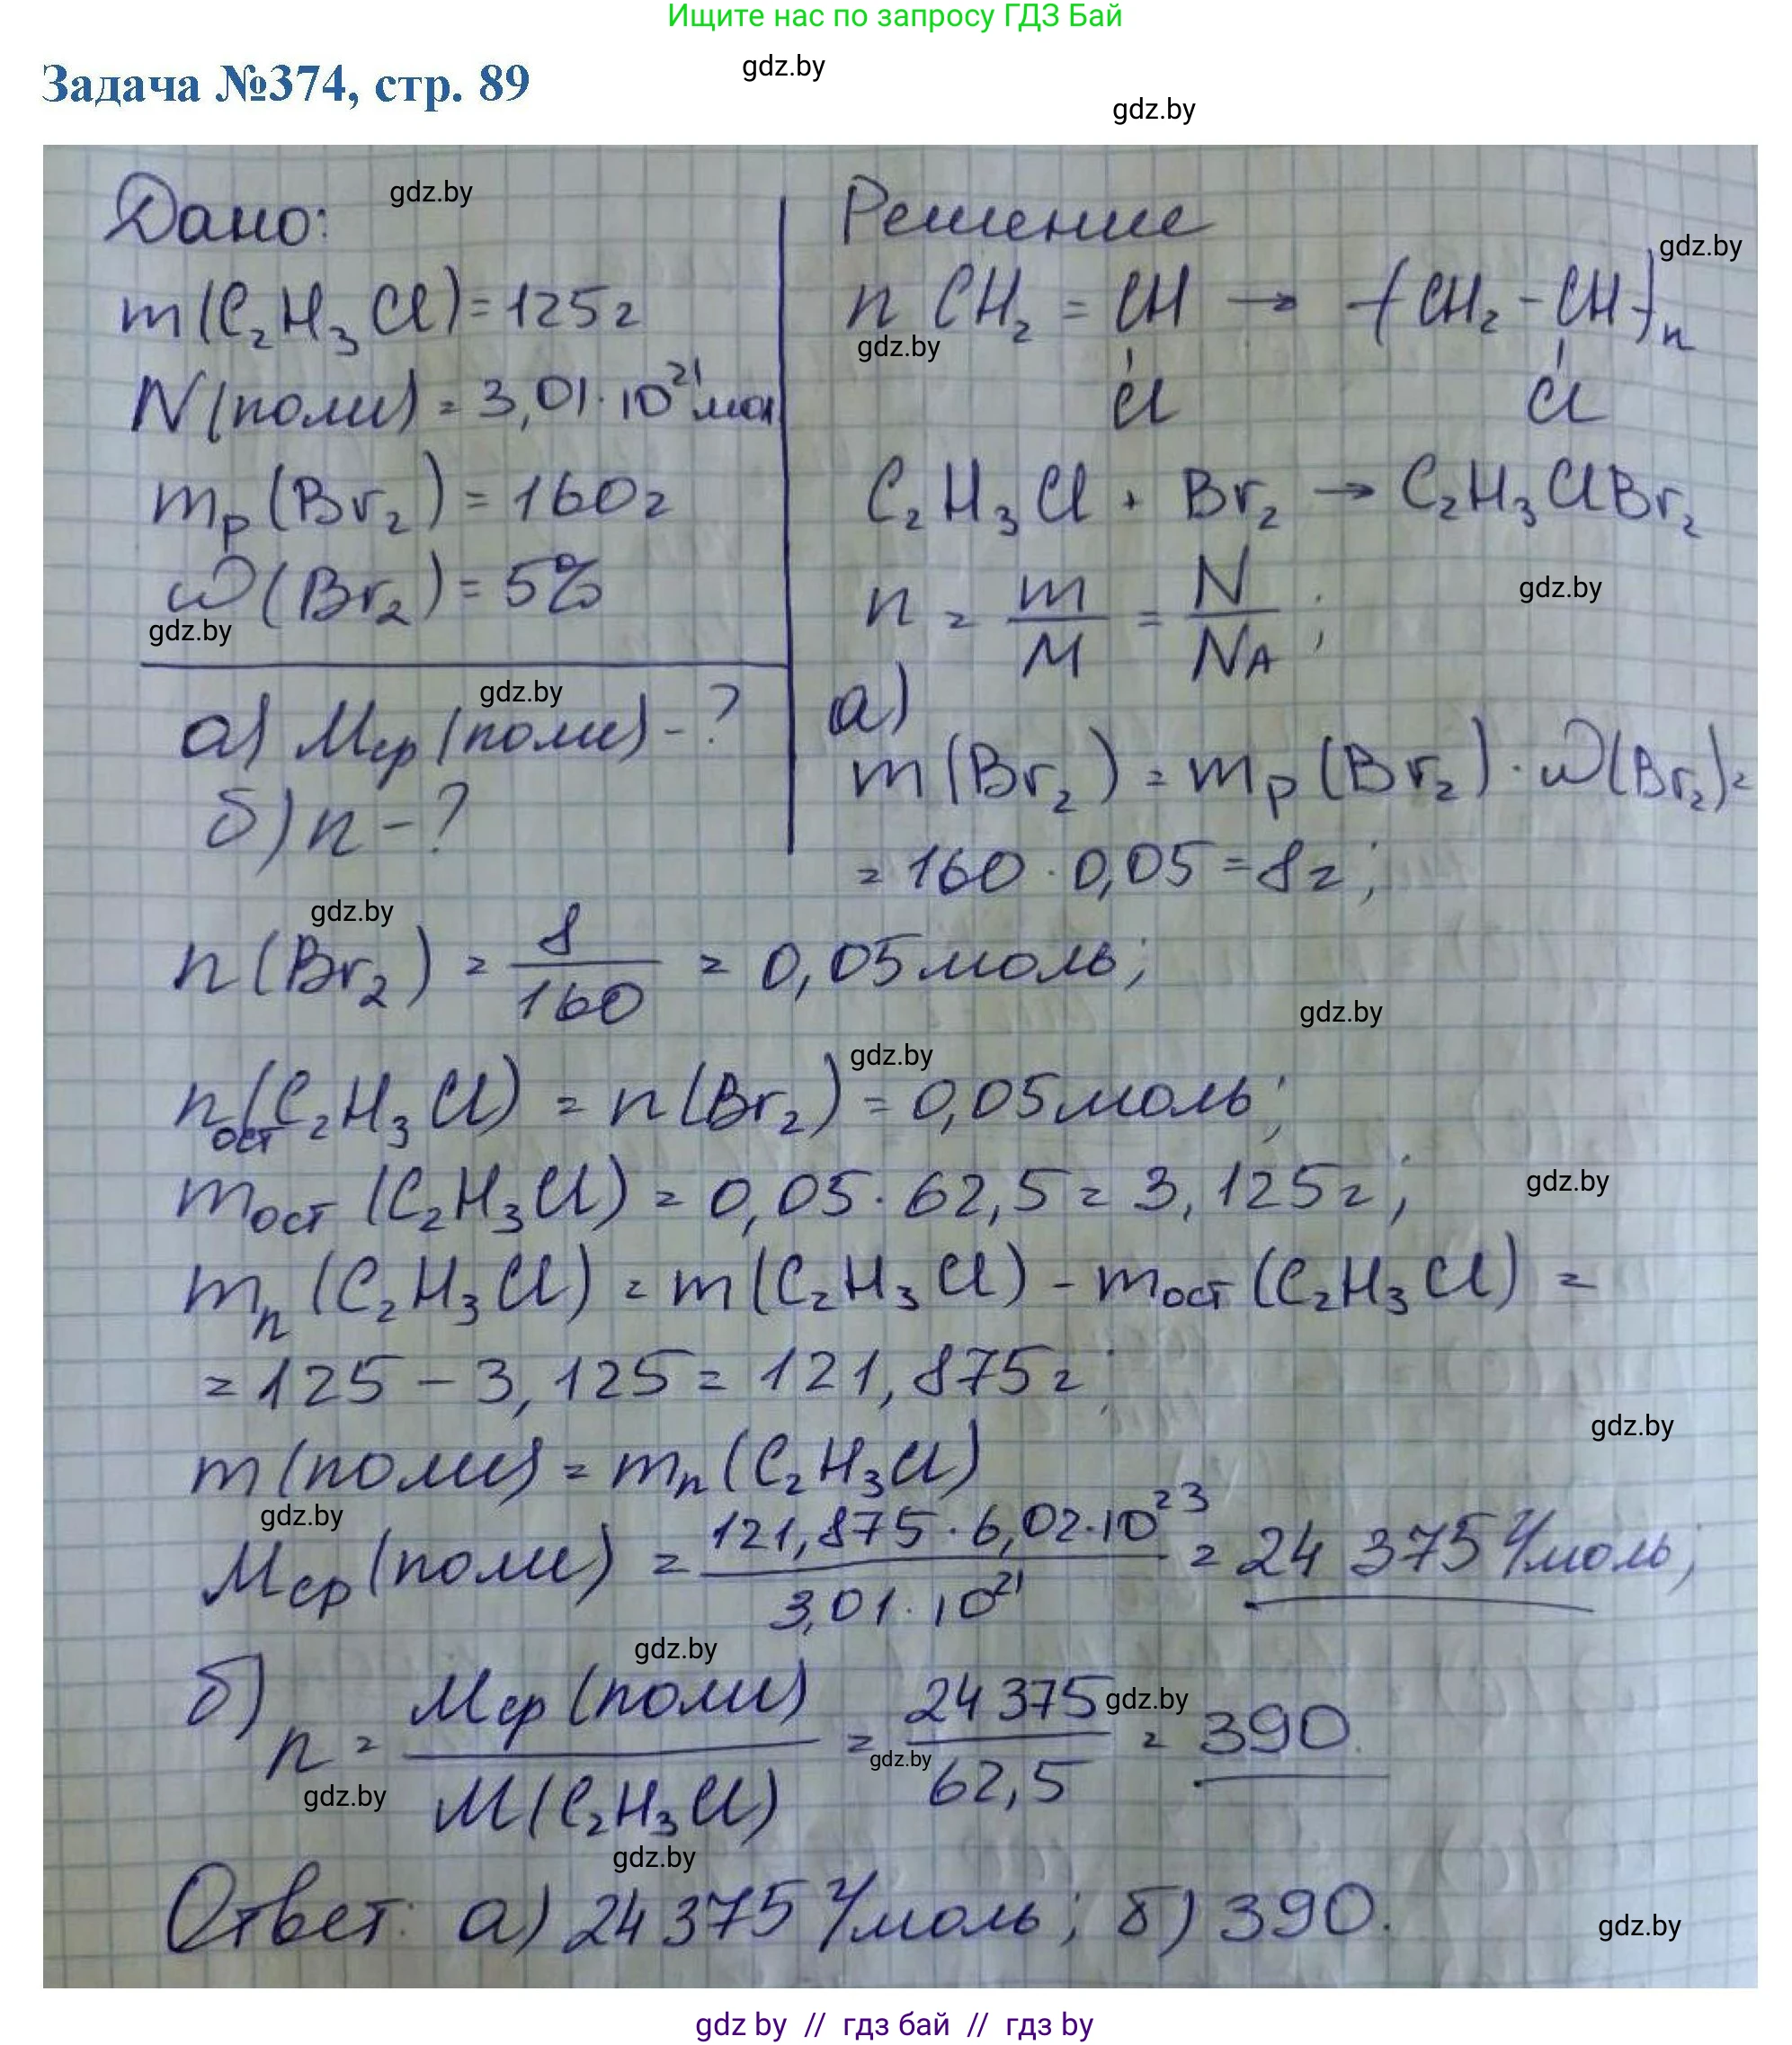 Ищите нас по запросу ГДЗ Бай
gdz.by
Задача №374, стр. 89
gdz.by
Дано:
gdz.by
m(C₂H₃Cl)=125г
N(поли)=3,01·10²¹мол
mр(Br₂)=160г
ω(Br₂)=5%
gdz.by
gdz.by
а) Mср(поли)-?
б) n-?
Решение
gdz.by
n CH₂ = CH → -(CH₂ - CH-)n
gdz.by
Cl Cl
C₂H₃Cl + Br₂ → C₂H₃ClBr₂
gdz.by
n = m/M = N/NA;
а)
m(Br₂) = mр(Br₂)·ω(Br₂)=
=160·0,05=8г;
gdz.by
n(Br₂) = 8/160 = 0,05моль;
gdz.by
gdz.by
nост(C₂H₃Cl) = n(Br₂) = 0,05моль;
gdz.by
mост(C₂H₃Cl) = 0,05·62,5 = 3,125г;
mп(C₂H₃Cl) = m(C₂H₃Cl) - mост(C₂H₃Cl) =
=125-3,125=121,875г;
gdz.by
m(поли) = mп(C₂H₃Cl)
gdz.by
Mср(поли) = 121,875·6,02·10²³/3,01·10²¹ = 24 375 г/моль;
gdz.by
б) n = Mср(поли)/M(C₂H₃Cl) = 24375/62,5 = 390.
gdz.by
gdz.by
gdz.by
gdz.by
Ответ: а) 24375 г/моль; б) 390.
gdz.by
gdz by // гдз бай // гдз by